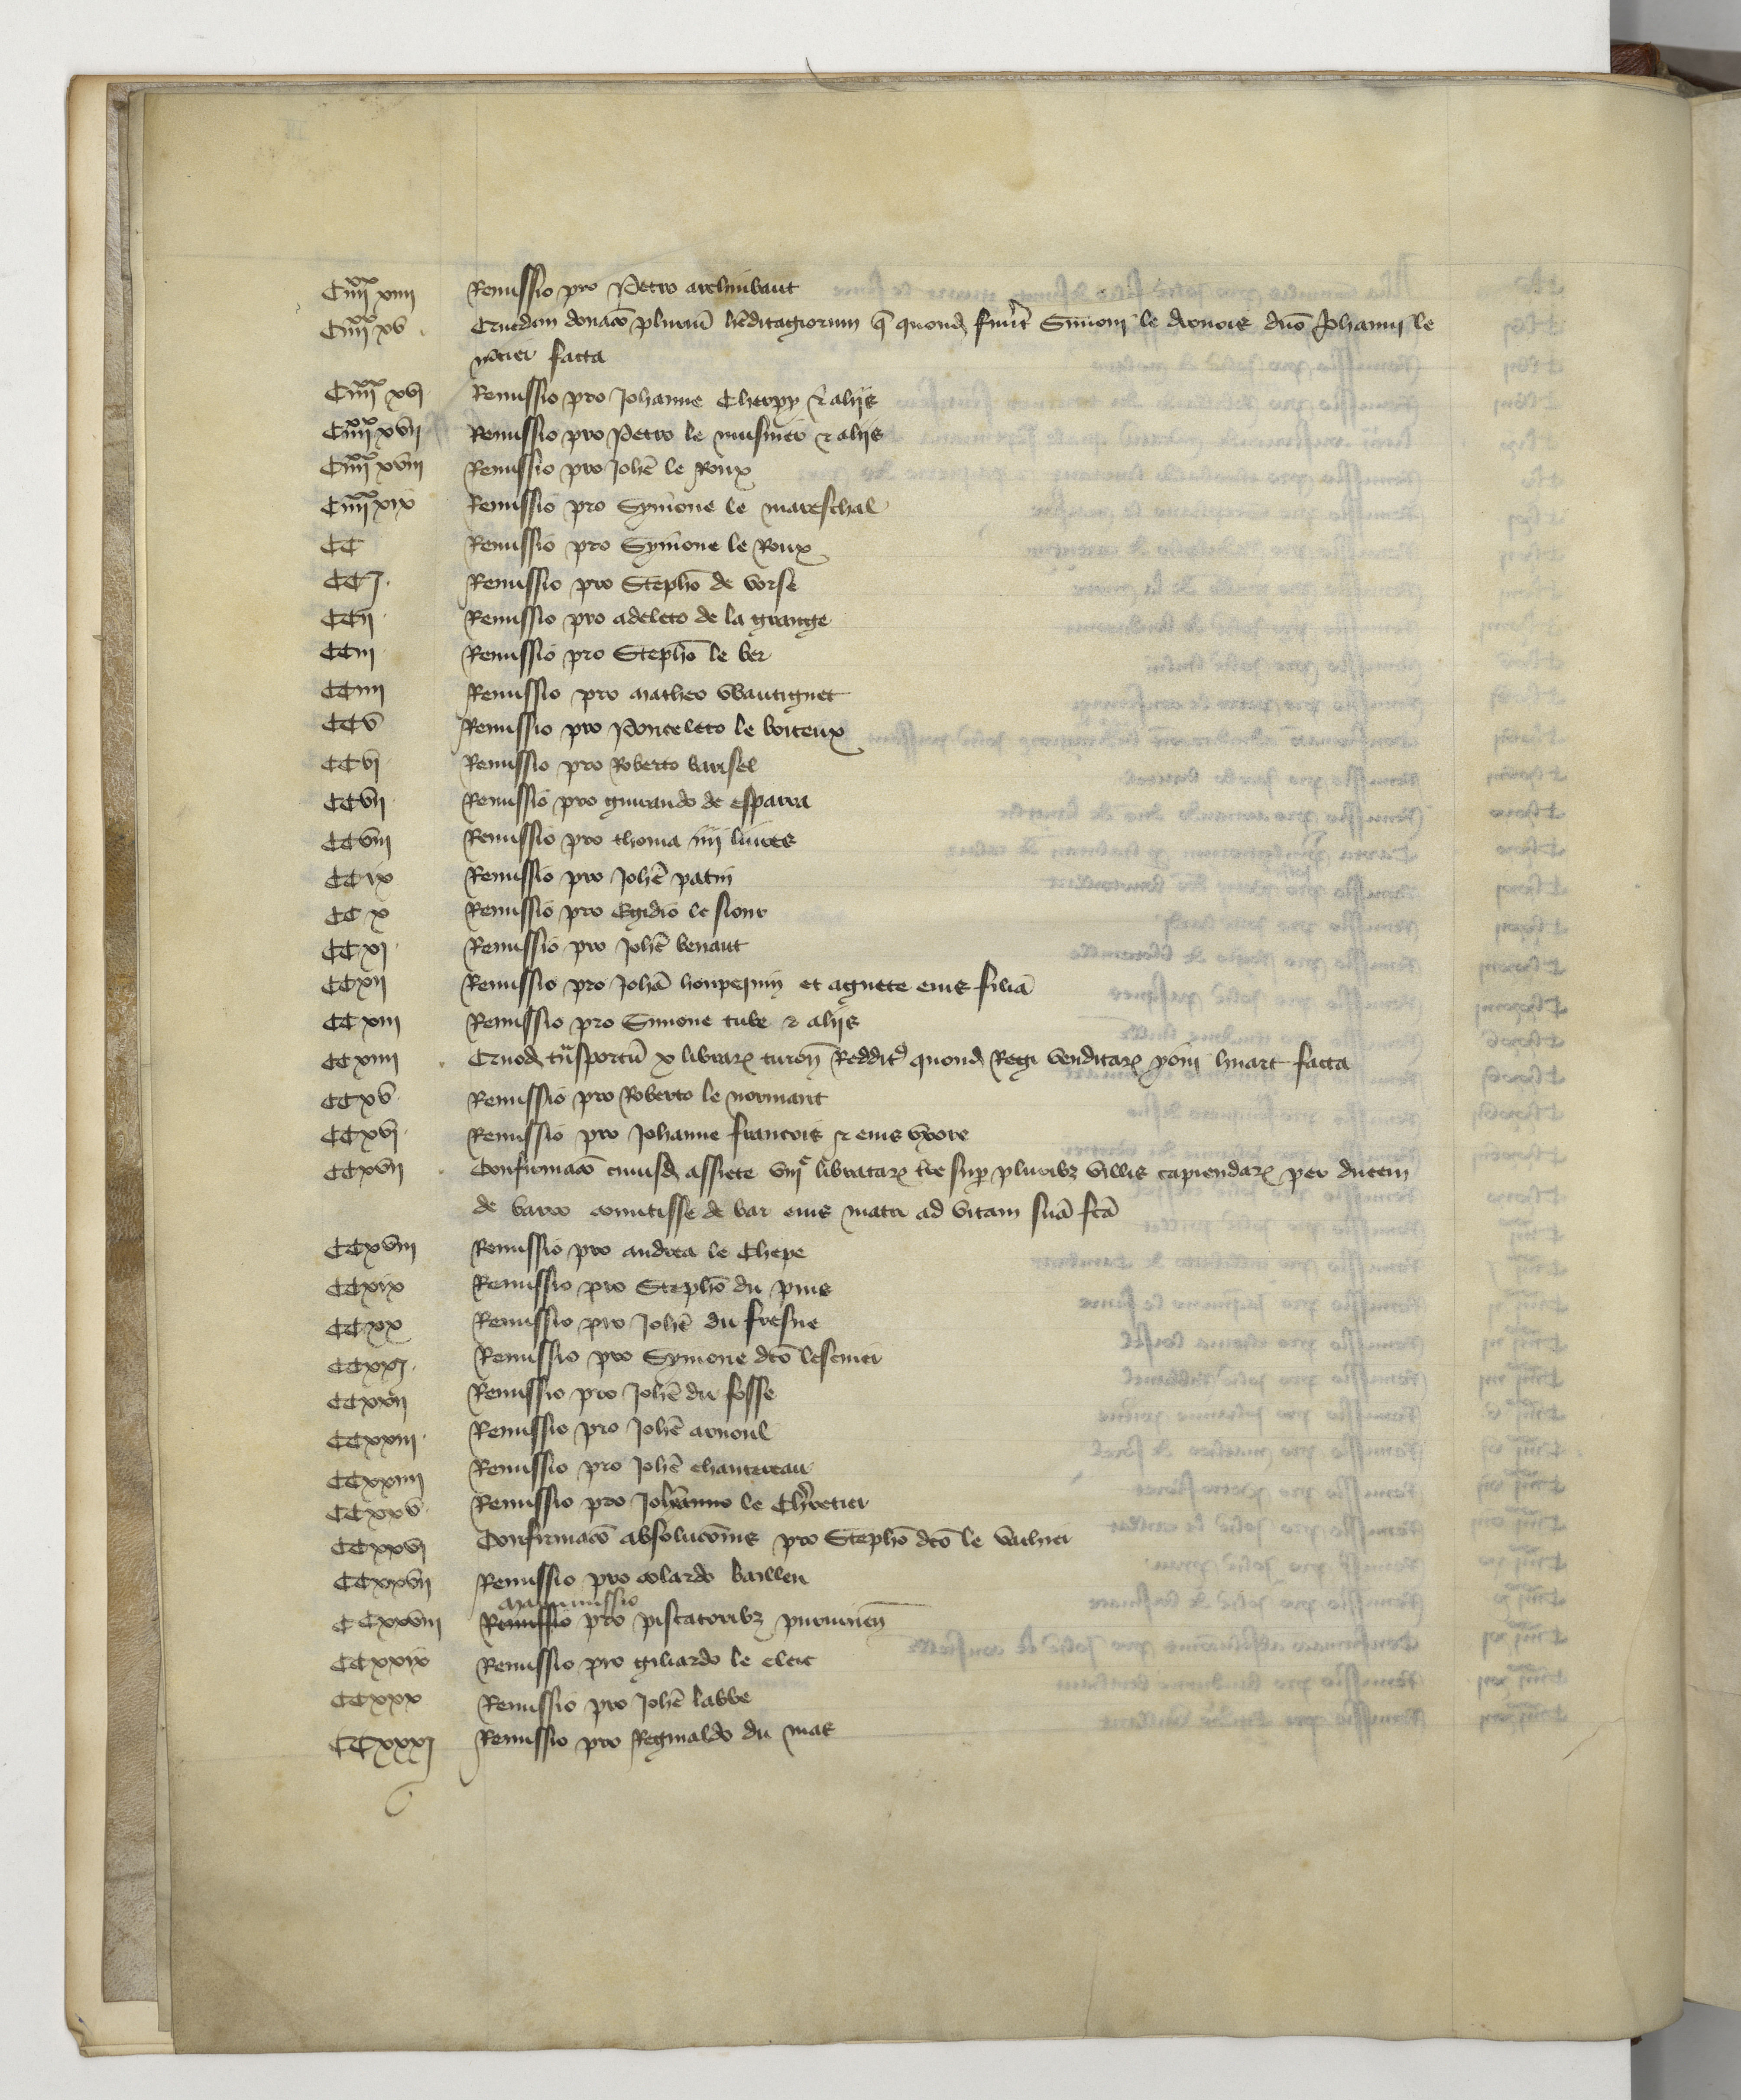 Ciiii^xx xiiii Remissio pro Petro archinbaut
Ciiii^xx xv Cuiusdam donacō plurium hēditagiorum q̄ quond fuer̄t Simoni le dronois dño Johanni le
facta
Ciiii^xx xvj Remissio pro Johanne Cherpy & aliis
Ciiii^xx xvii Remissio pro Petro le musnier & aliis
Ciiii^xx xviii Remissio pro Johē le Roux
Ciiii^xx xix Remissio pro Symone le mareschal
CC Remissio pro Symone le Roux
CCj Remissio pro Stephō de vorse
CCii Remissio pro adeleto de la grange
CCiii Remissio pro Stephō le ber
CCiiii Remissio pro Matheo Wautignet
CCv Remissio pro Ponceleto le boiteux
CCvj Remissio pro Roberto barisel
CCvii Remissio pro guirando de esparra
CCviii Remissio pro thoma iiii livres
CCix Remissio pro Johē patin
CC x Remissio pro Egidio le sionr
CC xj Remissio pro Johē benaut
CCxii Remissio pro Johā houpequin et agnete eius filiā
CC xiii Remissio pro Simone tube & aliis
CC xiiii Cuiusd trāsportū x librar turoñ Reddit quond Regi venditar huart facta
CC xv Remissio pro Roberto le normant
CC xvj Remissio pro Johanne francois & eius uxore
CCxvii Confirmacō cuiusd assiete viii^c libratar tre sup pluribz villis capiendar per ducem
de barro comitisse de bar eius matri ad vitam suā fcā
CCxviii Remissio pro andrea le Chepe
CCxix Remissio pro Stephō du puis
CC xx Remissio pro Johē du fresne
CCxxj Remissio pro Symone dcō lescuier
CCxxii Remissio pro Johē du fosse
CCxxiii Remissio pro Johē arnoul
CCxxiiii Remissio pro Johē chantereau
CCxxv Remissio pro Johanno le Charretier
CCxxvj Confirmacō absolucōnis pro Stephō dcō le
CCxxvii Remissio pro colardo baillen
Manumissio
CCxxviii Remissio pro piscatoribz
CCxxix Remissio pro giliardo le clerc
CCxxx Remissio pro Johē labbe
CCxxxj Remissio pro Reginaldo du mas